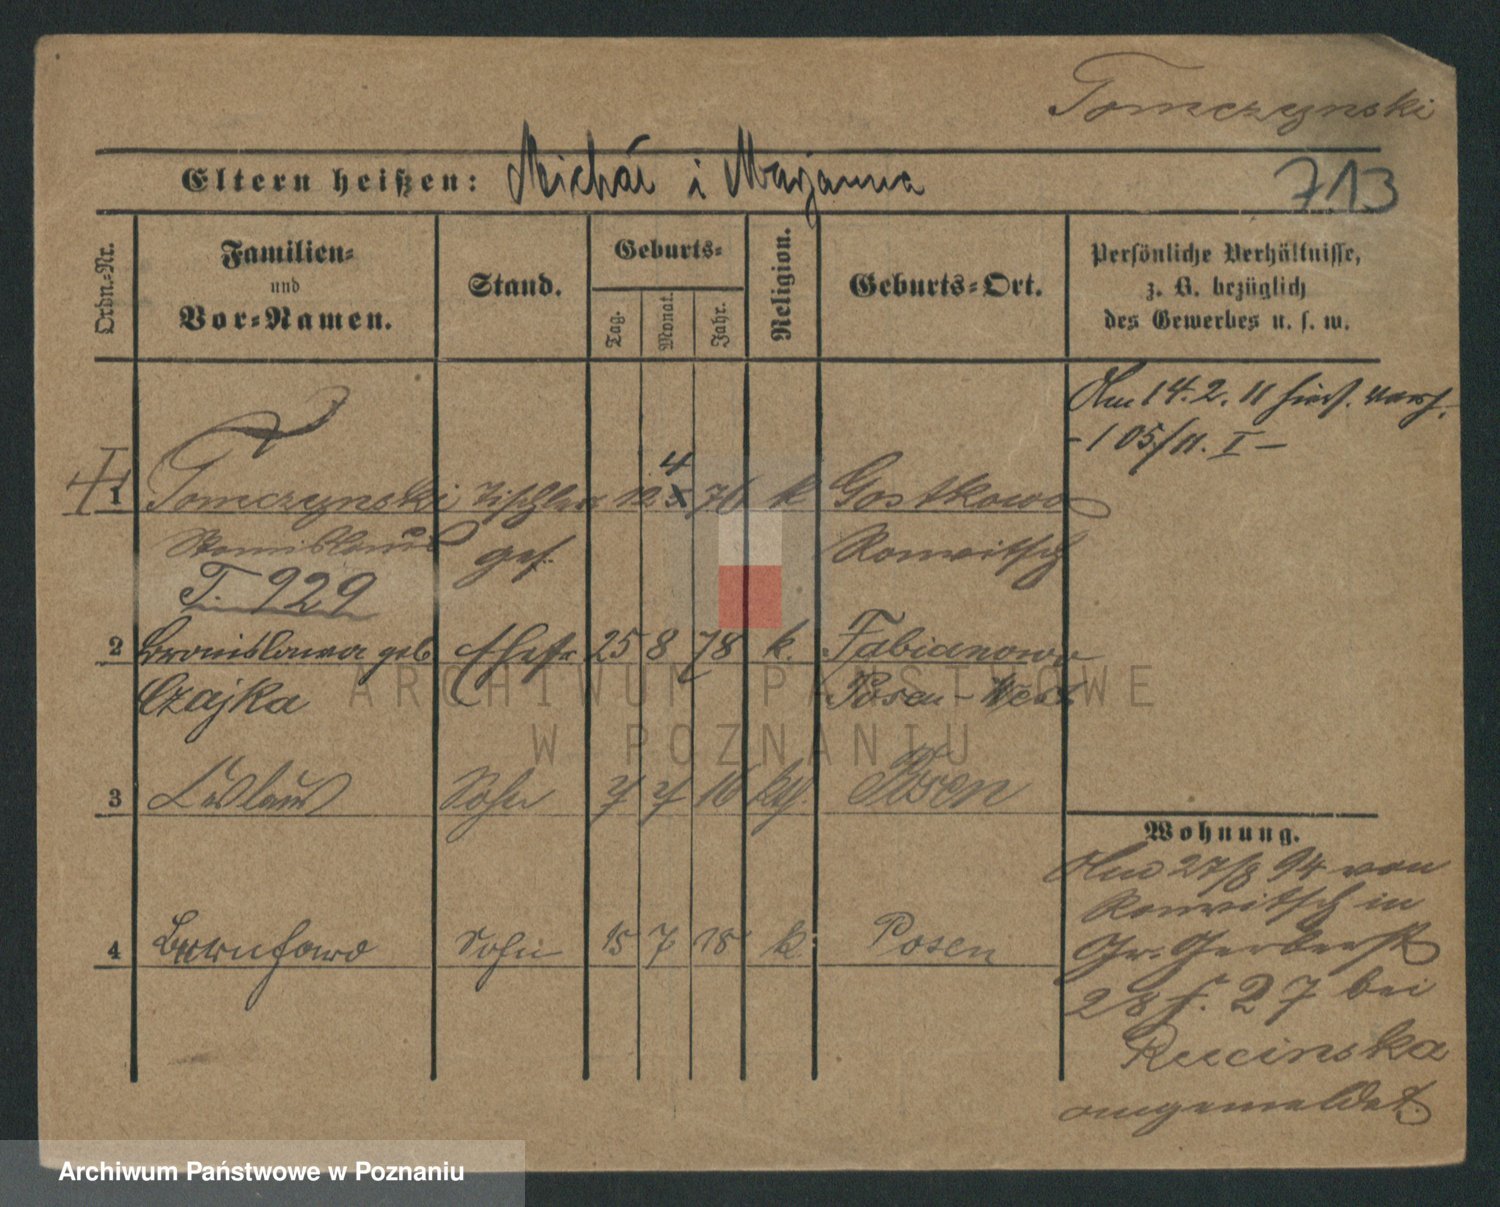 Tomczynski
Eltern heißen: Michał i Marjanna
713
Ordn.-Nr.
Familien-
und
Vor-Namen.
Stand.
Geburts-
Tag.
Monat.
Jahr.
Religion.
Geburts-Ort.
Persönliche Verhältnisse,
z. B. bezüglich
des Gewerbes u. s. w.
Am 14. 2. 11
-105/11. I-
4
1 Tomczynski Tischler 12 5 76 k Gostkowo
Stanislaus ges. Rawitsch
T. 929
2 Bronislawa geb Ehefr 25 8 78 k. Fabianowo
Czajka Posen-West
3 Sohn 7 7 16 kth. Posen
4 Bernhard Sohn 15 7 18 k. Posen
Wohnung.
Am 27/8 94 von
Rawitsch in
Gr. Gerberst
28 27 bei
Rucinska
angemeldet.
ARCHIWUM PAŃSTWOWE
W POZNANIU
Archiwum Państwowe w Poznaniu